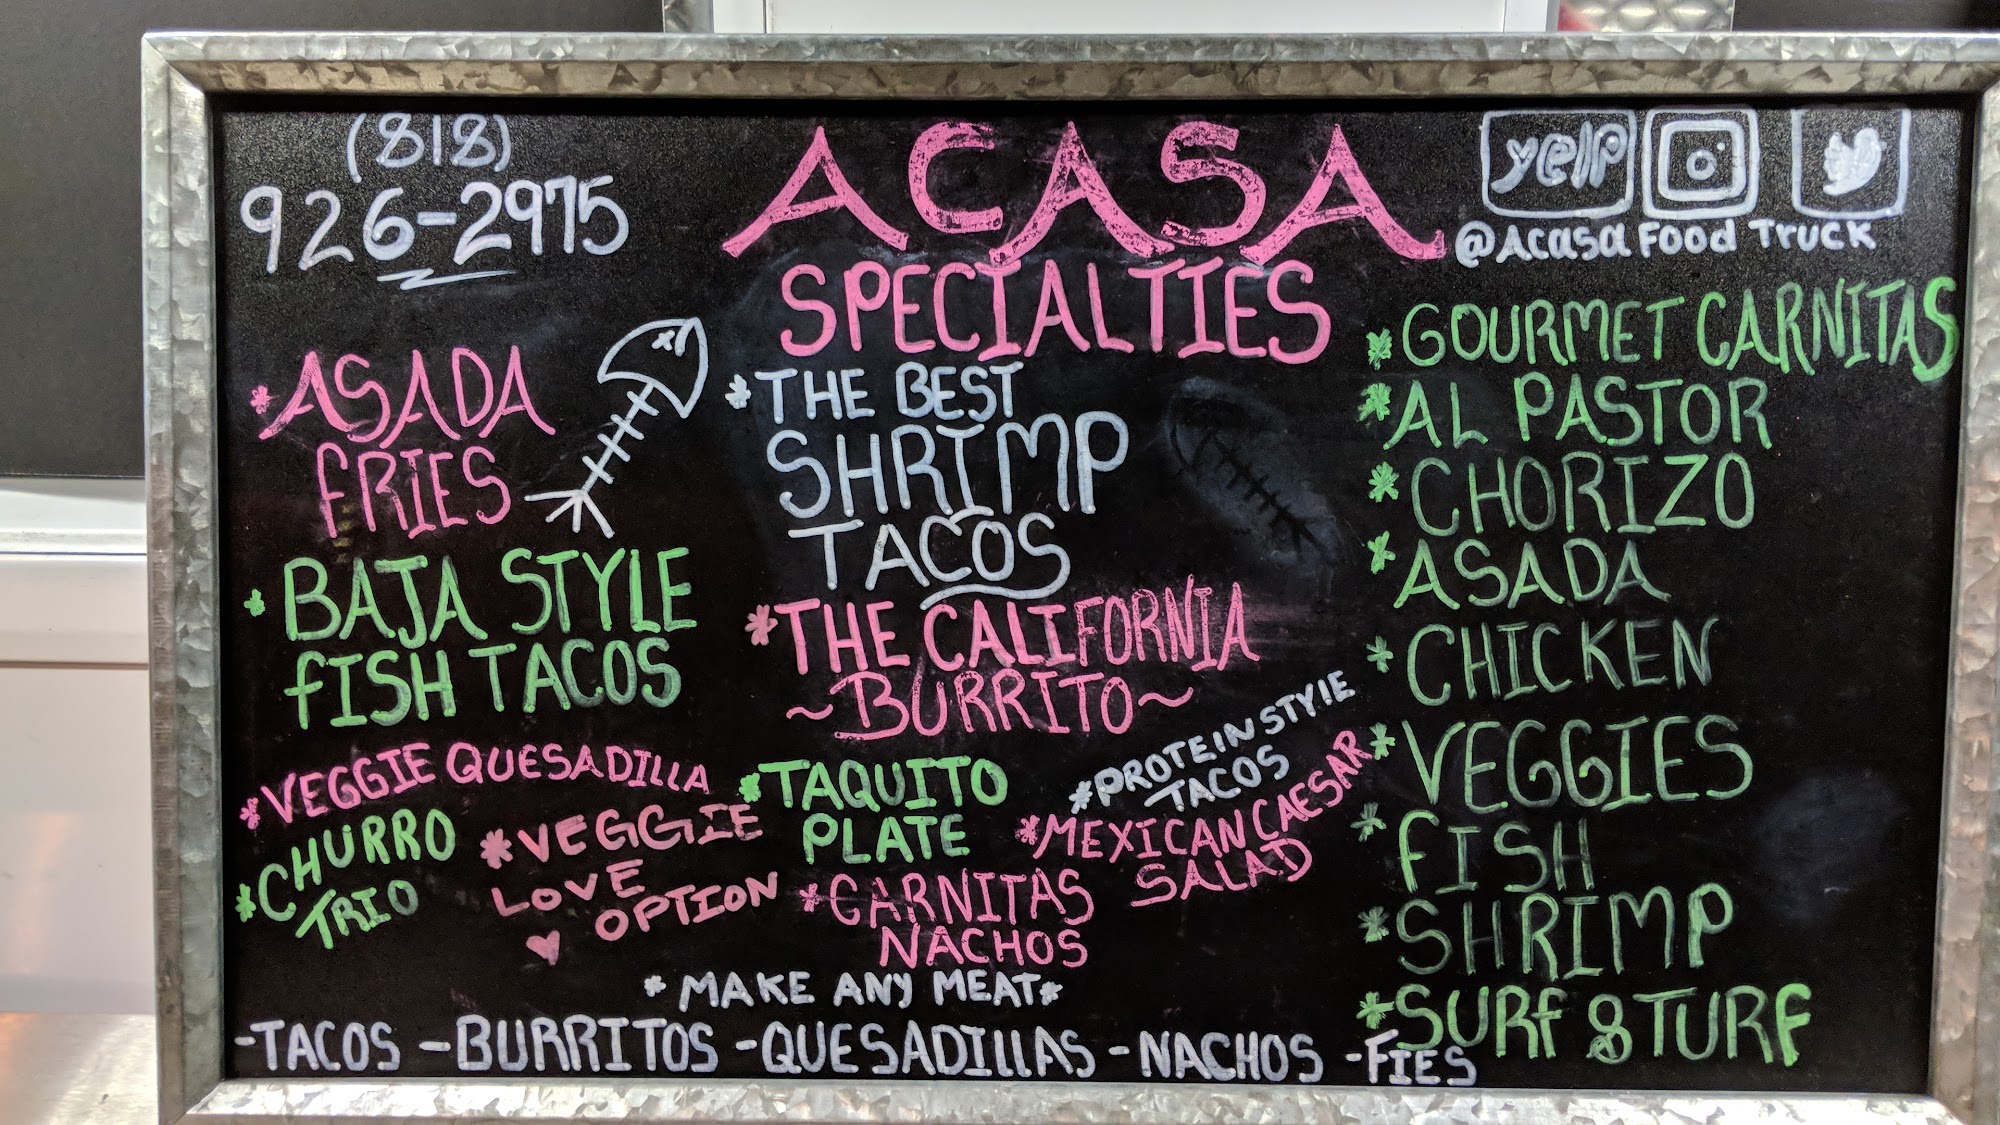 (818)
926-2975
ACASA
SPECIALTIES
yelp
@Acasa Food Truck
*ASADA
FRIES
*BAJA STYLE
FISH TACOS
*VEGGIE QUESADILLA
*CHURRO
TRIO
*VEGGIE
LOVE
OPTION
*THE BEST
SHRIMP
TACOS
*THE CALIFORNIA
~BURRITO~
*TAQUITO
PLATE
*PROTEIN STYLE
TACOS
*MEXICAN CAESAR
SALAD
*CARNITAS
NACHOS
*GOURMET CARNITAS
*AL PASTOR
*CHORIZO
*ASADA
*CHICKEN
*VEGGIES
*FISH
*SHRIMP
*SURF & TURF
*MAKE ANY MEAT*
-TACOS -BURRITOS -QUESADILLAS -NACHOS -FIES